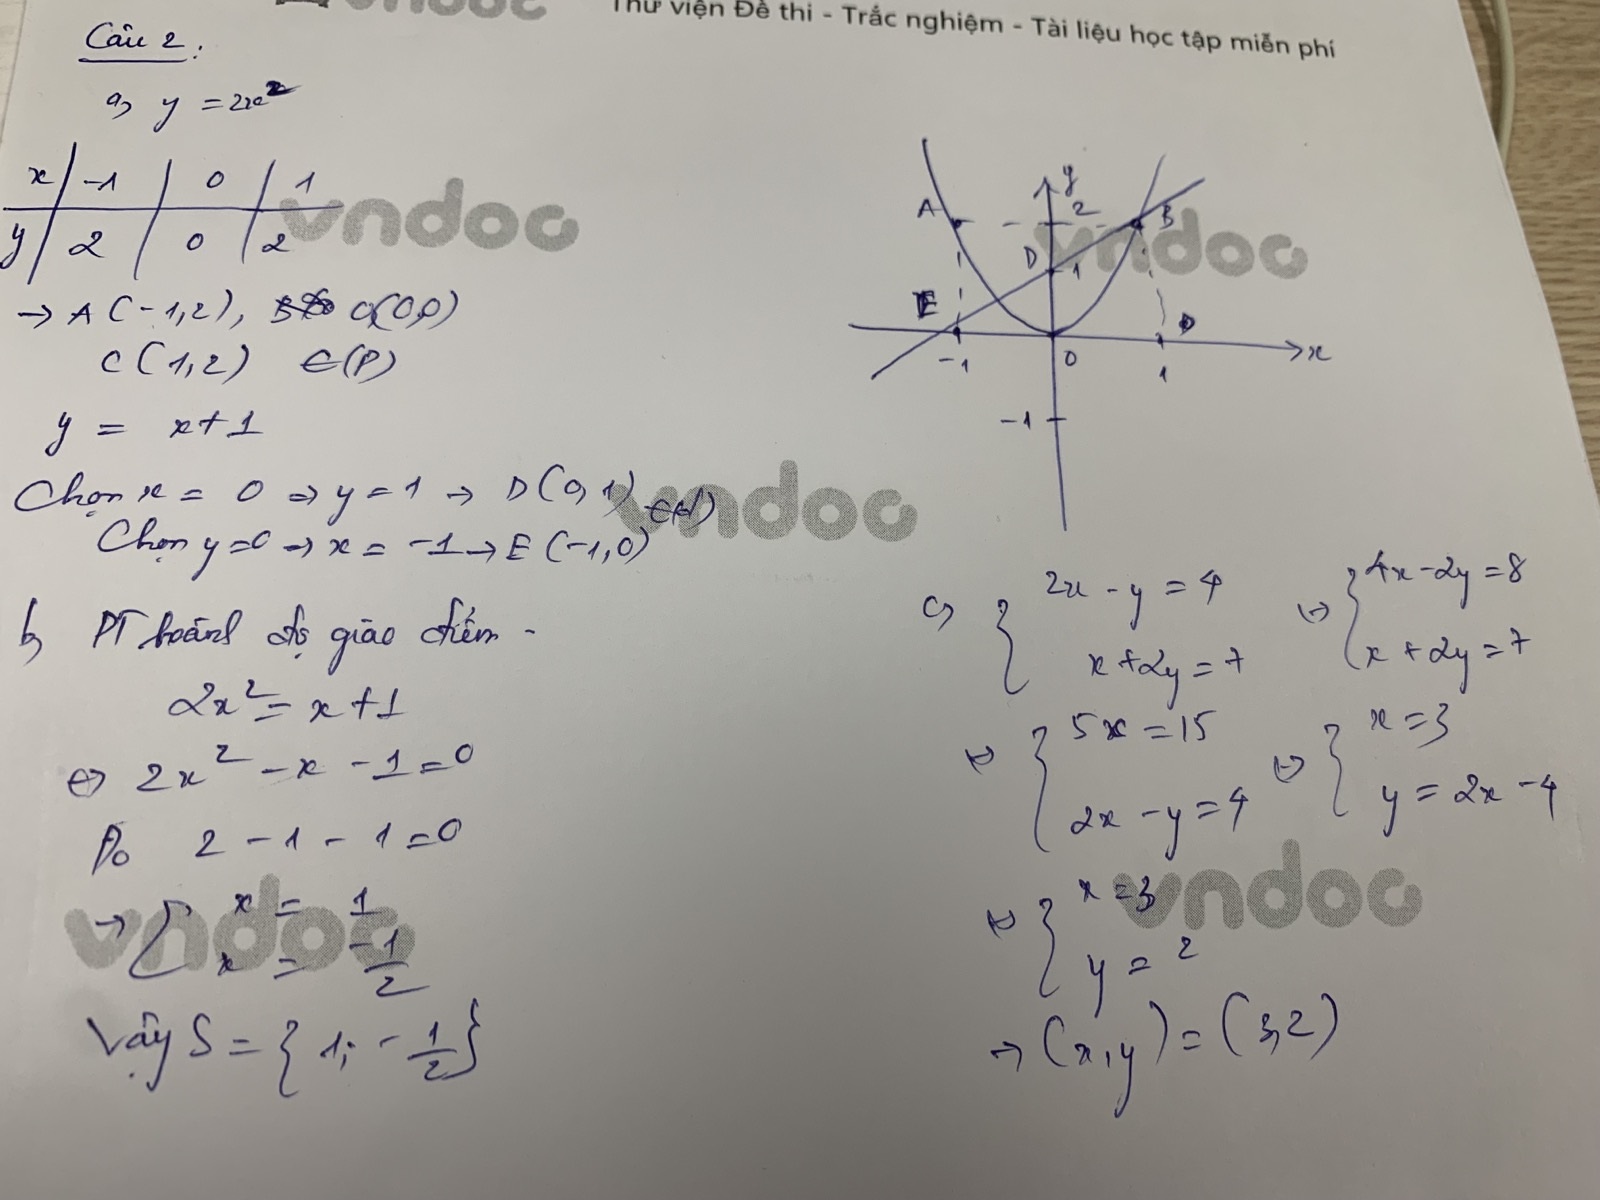 vndoc
Thư viện Đề thi - Trắc nghiệm - Tài liệu học tập miễn phí
Câu 2:
a, y = 2x²
x -1 0 1
y 2 0 2
→ A(-1,2), O(0,0)
C(1,2) ∈(P)
y = x+1
Chọn x = 0 ⇒ y = 1 → D(0,1)
Chọn y=0 → x = -1 → E(-1,0) ∈(d)
b, PT hoành độ giao điểm -
2x² = x+1
⇔ 2x² - x - 1 = 0
Do 2 - 1 - 1 = 0
→ [ x = 1
x = -1/2
Vậy S = { 1; -1/2 }
y
A 2 B
D 1
E D
-1 0 1 x
-1
c, { 2x - y = 4
x + 2y = 7
⇔ { 4x - 2y = 8
x + 2y = 7
⇔ { 5x = 15
2x - y = 4
⇔ { x = 3
y = 2x - 4
⇔ { x = 3
y = 2
→ (x,y) = (3,2)
vndoc
vndoc
vndoc
vndoc
vndoc